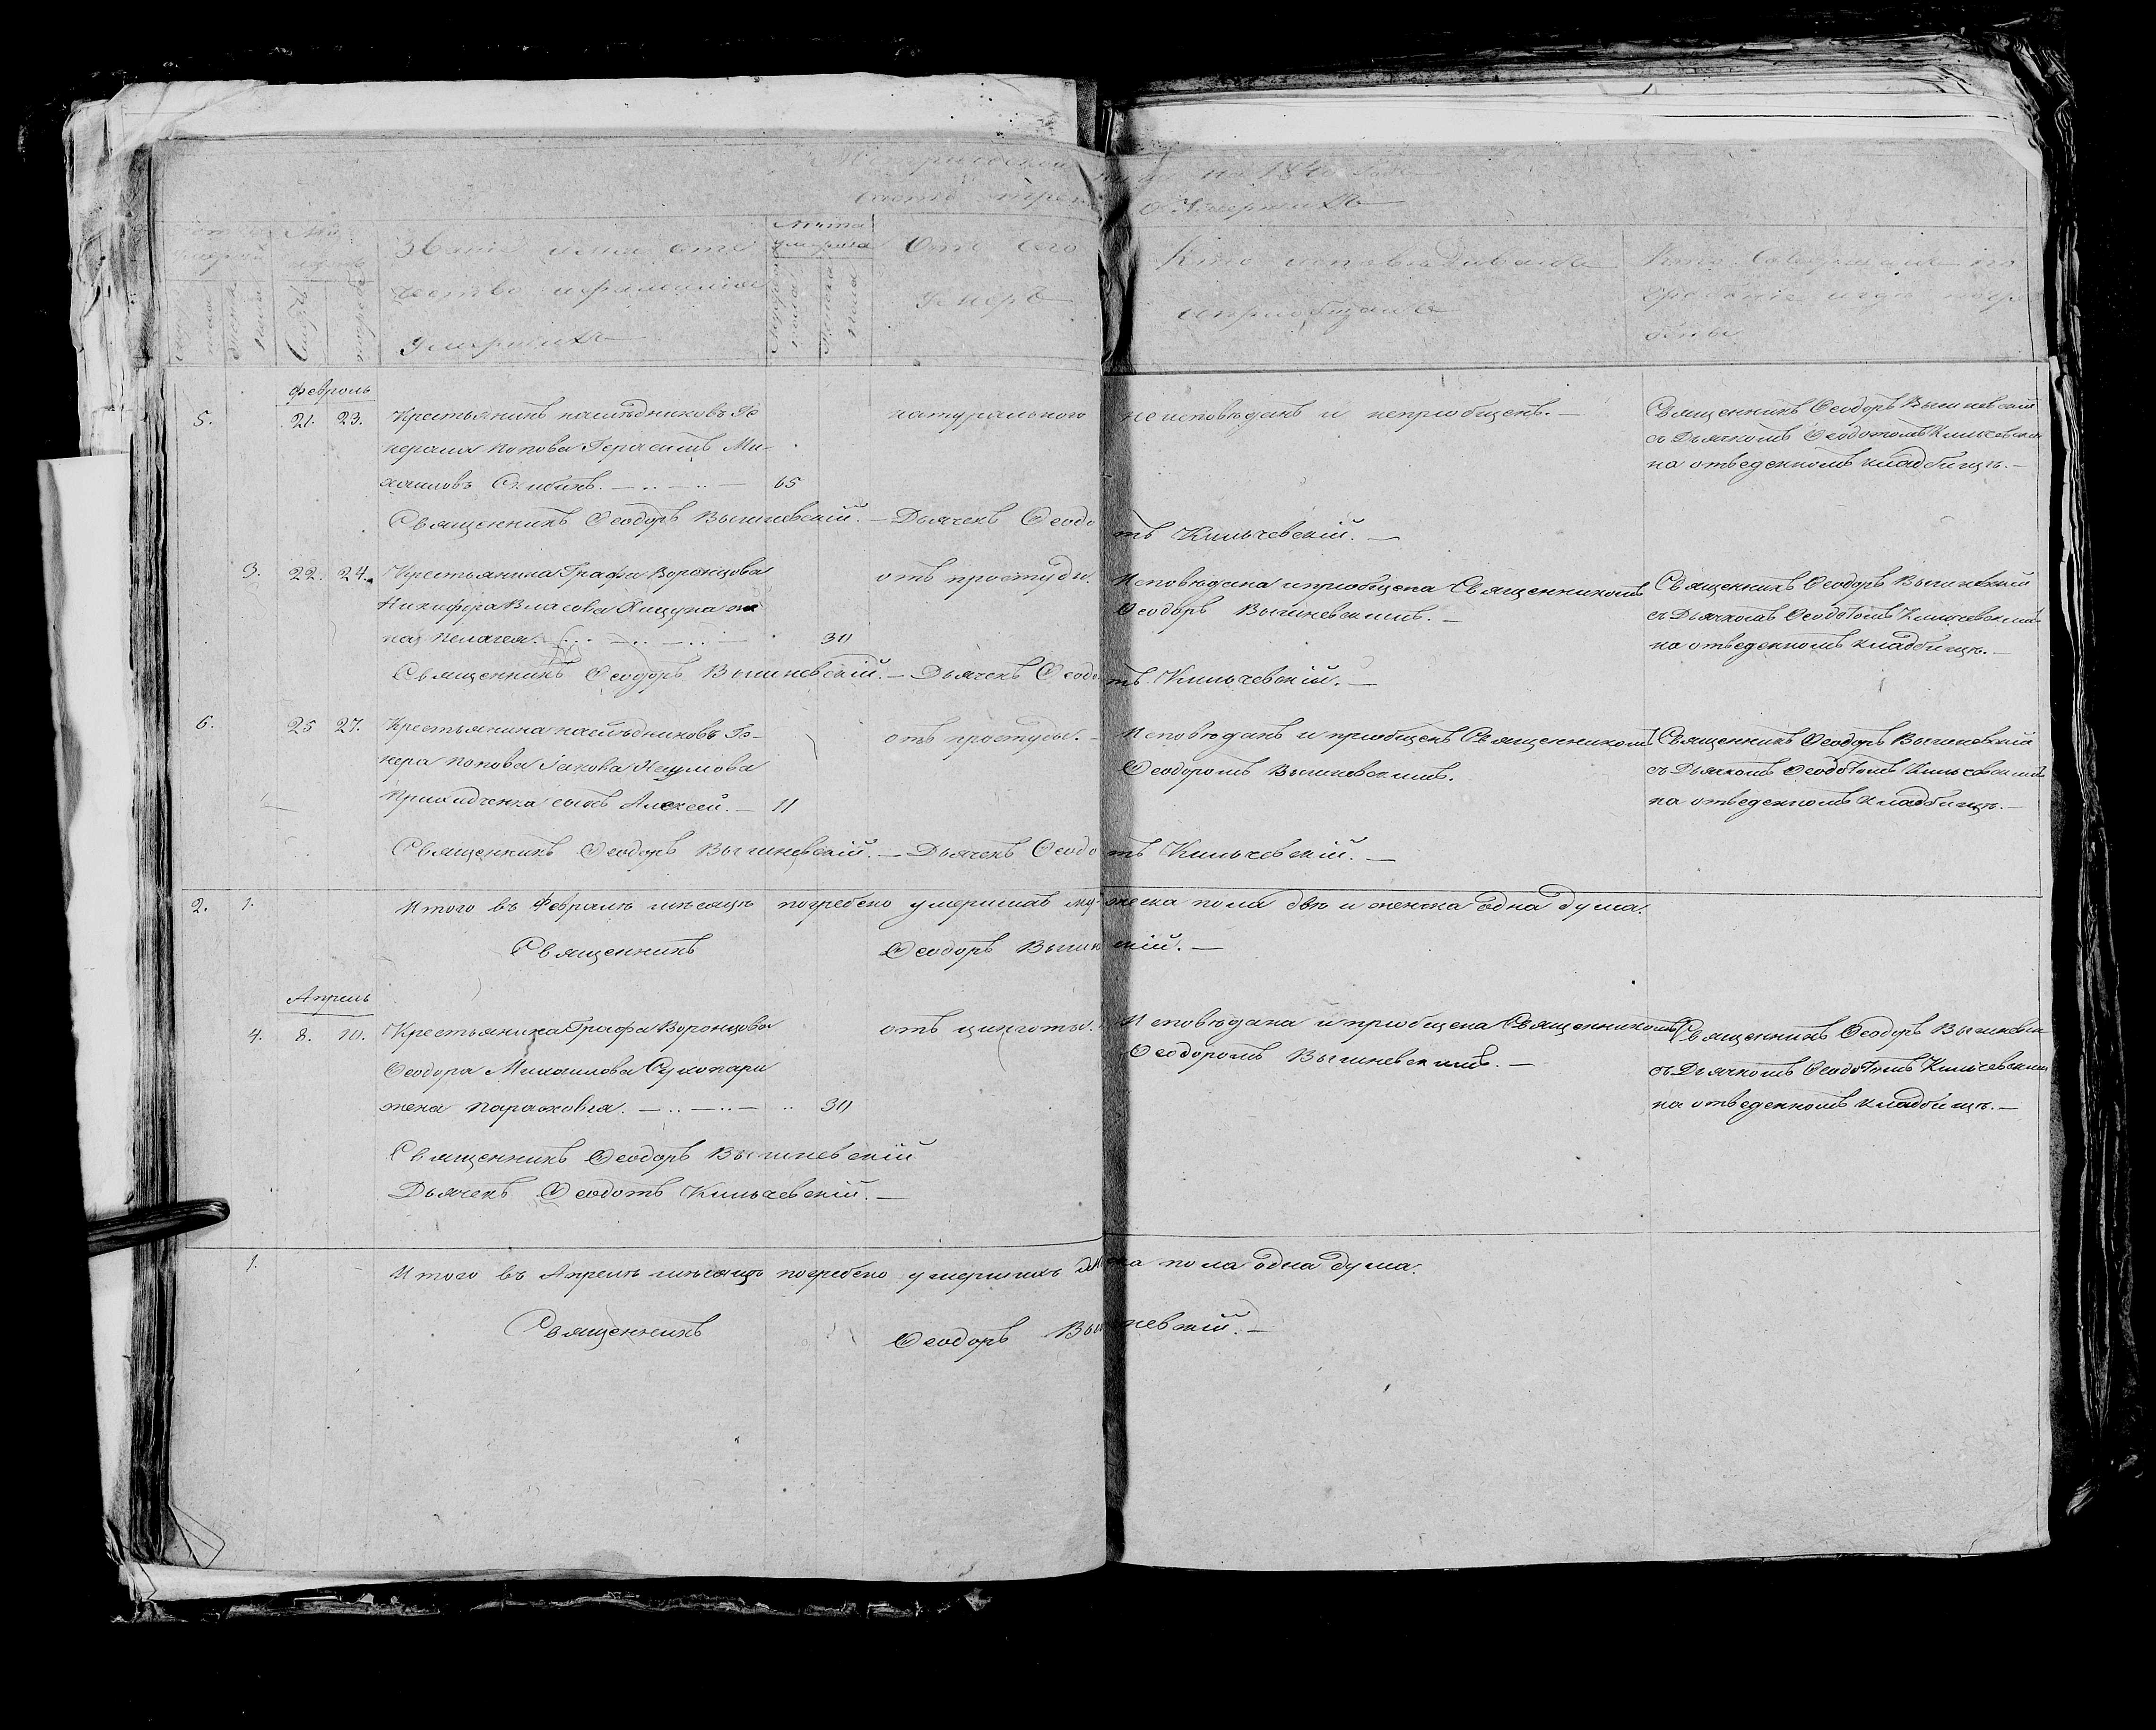 Метрической книги на 1840 годъ
Часть третья о Умершихъ
Званіе имя оте
чество и фамилія
Умершихъ
Лѣта
умершаго
Мужеска
пола
Женска
пола
Отъ чего
умеръ
Кто исповѣдывалъ
и пріобщалъ
Кто совершалъ по
гребеніе и гдѣ погр
ебены
Февраль
5. 21. 23. Крестьянинъ наслѣдниковъ Ге
нерала Попова Герасимъ Ми-
хаиловъ 65
натуральною
неисповѣданъ и непріобщенъ. —
Священникъ Феодоръ Вышневскій
съ Дьячкомъ Феодотомъ Кильчевским
на отведенномъ кладбищѣ. —
Священникъ Феодоръ Вышневскій. — Дьячекъ Феодотъ Кильчевскій. —
3. 22. 24. Крестьянина Графа Воронцова
Никифра Власова Хищука же
на Пелагея. 30
отъ простуды.
Исповѣдана и пріобщена Священникомъ
Феодоръ Вышневскимъ. —
Священникъ Феодоръ Вышневский
съ Дьячкомъ Феодотомъ Кильчевским
на отведенномъ кладбищѣ. —
Священникъ Феодоръ Вышневскій. — Дьячекъ Феодотъ Кильчевскій. —
6. 25 27. Крестьянина наслѣдниковъ Ге-
нера Попова Іакова Наумова
Приходченка сынъ Алексей. — 11
отъ простуды. —
Исповѣданъ и пріобщенъ Священникомъ
Феодоромъ Вышневскимъ.
Священникъ Феодоръ Вышневскій
съ Дьячкомъ Феодотомъ Кильчевскимъ
на отведенномъ кладбищѣ. —
Священникъ Феодоръ Вышневскій. — Дьячекъ Феодотъ Кильчевскій. —
2. 1. Итого въ Февралѣ мѣсяцѣ погребено умершихъ мужеска пола двѣ и женска одна душа.
Священникъ Феодоръ Вышнскій. —
Апрель
4. 8. 10. Крестьянина Графа Воронцова
Феодора Михаилова Сухопари
жена Парасковіа. 30
отъ цынготы.
Исповѣдана и пріобщена Священникомъ
Феодоромъ Вышневскимъ. —
Священникъ Феодоръ Вышневск
съ Дьячкомъ Феодотомъ Кильчевским
на отведенномъ кладбищѣ. —
Священникъ Феодоръ Вышневскій
Дьячекъ Феодотъ Кильчевскій. —
1. Итого въ Апрелѣ мѣсяцѣ погребено умершихъ женска пола одна душа.
Священникъ Феодоръ Вышневскій. —